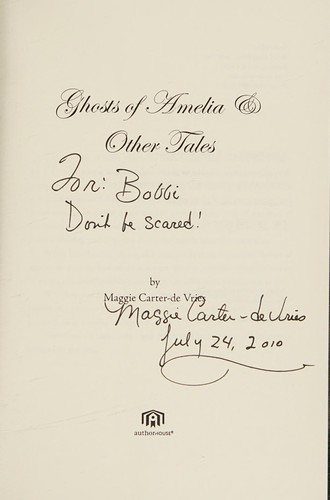 Ghosts of Amelia &
Other Tales
For: Bobbi
Don't be scared!
by
Maggie Carter-de Vries
Maggie Carter-deVries
July 24, 2010
authorHOUSE®